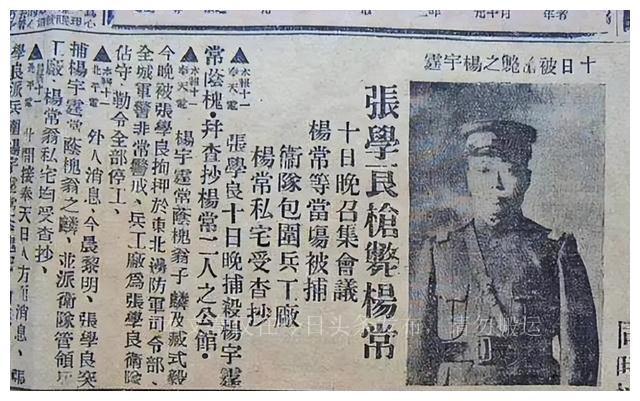 十日被槍斃之楊宇霆
張學良槍斃楊常
十日晚召集會議
楊常等當場被捕
衛隊包圍兵工廠
楊常私宅受查抄
▲本報十一奉天電 張學良十日晚捕殺楊宇霆
常蔭槐·并查抄楊常二人之公館·
▲本報十一奉天電 楊宇霆常蔭槐翁子麟及臧式毅
今晚被張學良拘押於東北邊防軍司令部、
全城軍警非常警戒、兵工廠爲張學良衛隊
佔守、勒令全部停工、
▲本報十一北平電 外人消息、今晨黎明、張學良突
捕楊宇霆常蔭槐翁之麟、並派衛隊管領兵
工廠、楊常翁私宅均受查抄、
開接奉天日人方面消息、張
學良派兵